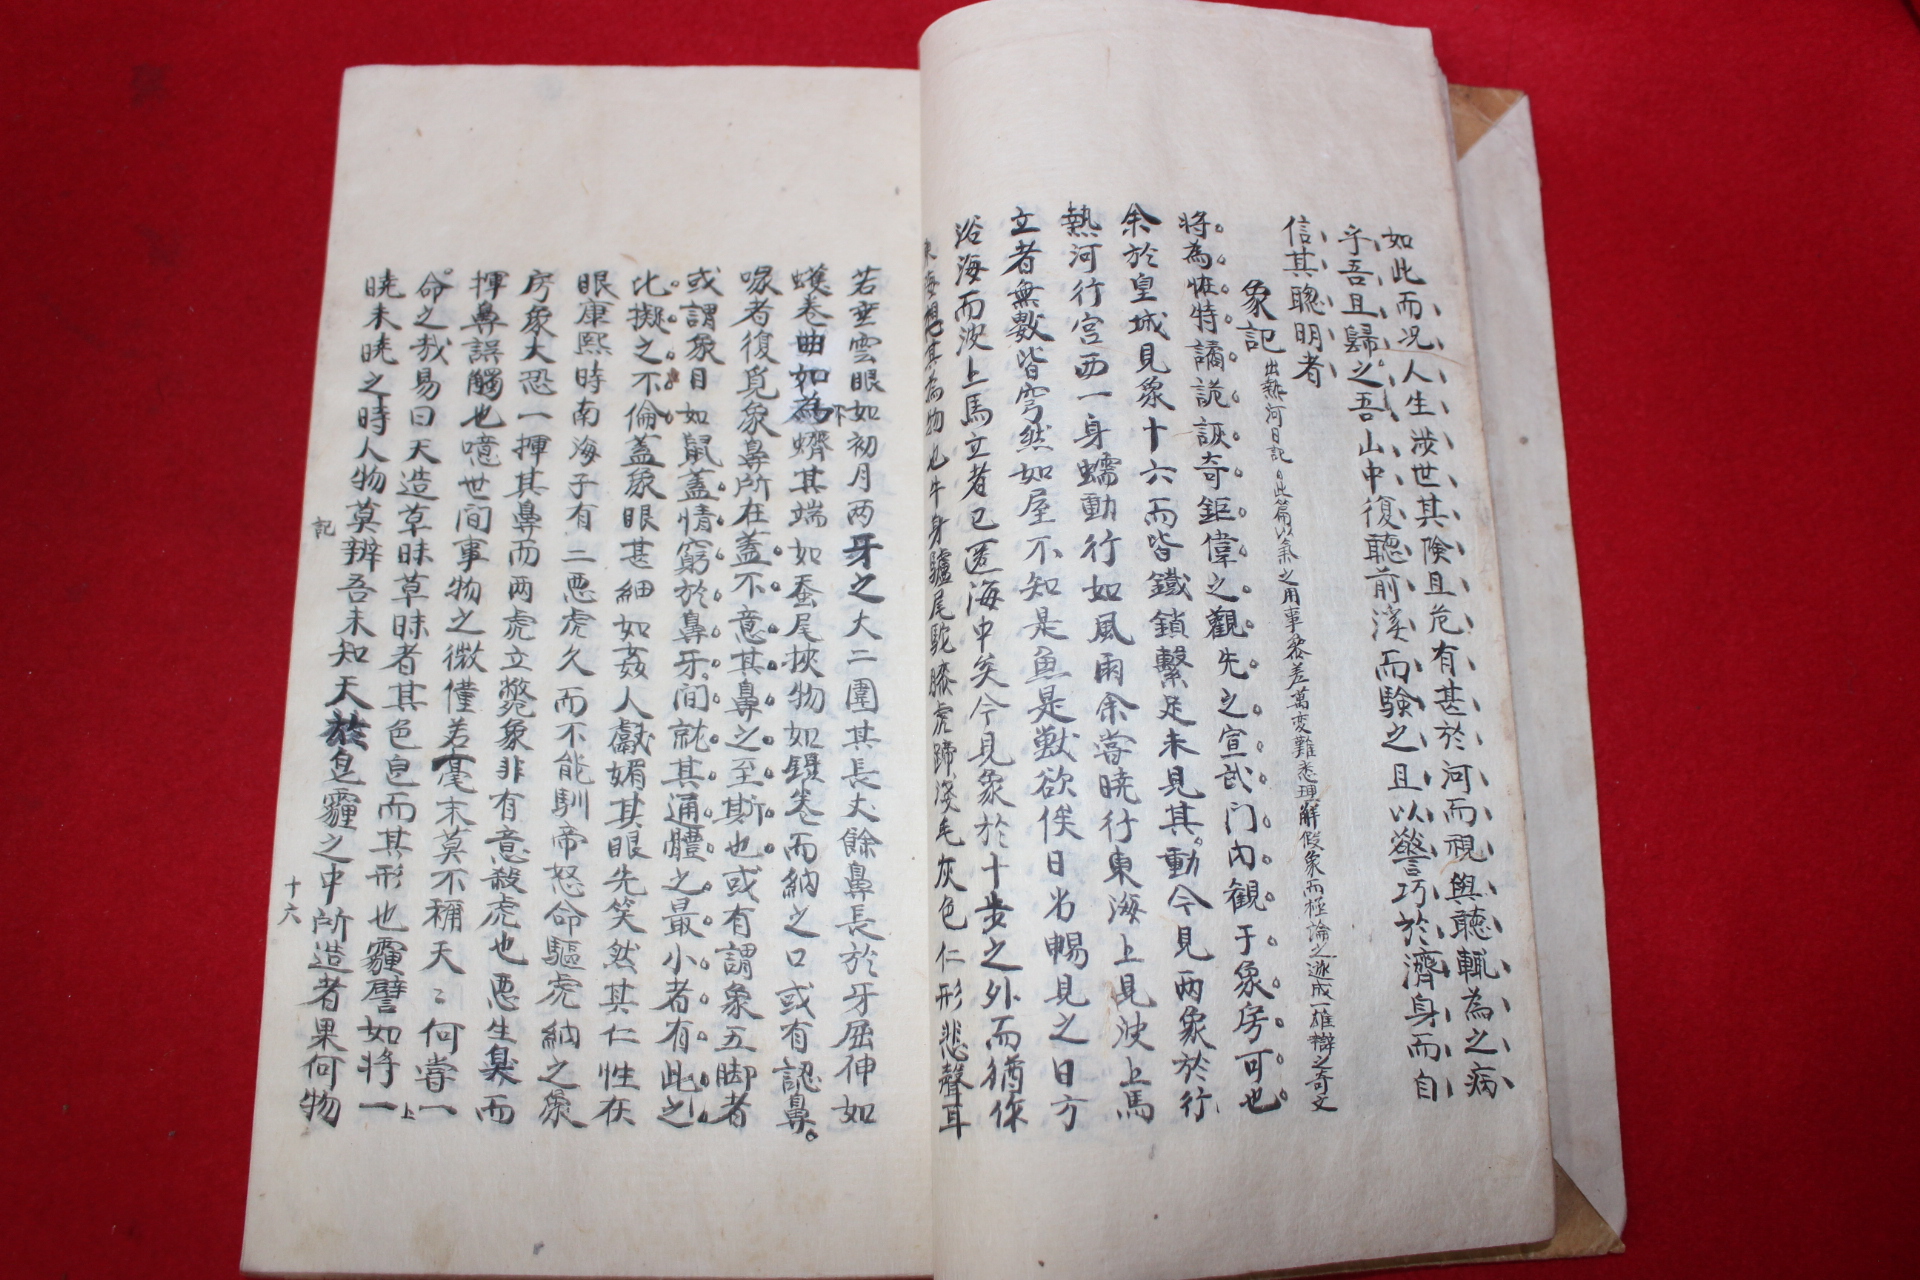 如此而况人生涉世其險且危有甚於河而視與聽輒為之病
乎吾且歸之吾山中復聽前溪而驗之且以警巧於濟身而自
信其聰明者
象記 出熱河日記 此篇以氣之用事參差萬変難悉理解假象而極論之遂成一雄辯之奇文
將為恠特譎詭詼奇鉅偉之觀先之宣武门內観于象房可也
余於皇城見象十六而皆鐵鎖繫足未見其動今見兩象於行
熱河行宮西一身蠕動行如風雨余嘗曉行東海上見波上馬
立者無數皆穹然如屋不知是魚是獸欲俟日出暢見之日方
浴海而波上馬立者已匿海中矣今見象於十步之外而猶作
東海想其為物也牛身驢尾駝膝虎蹄淺毛灰色仁形悲聲耳
若垂雲眼如初月两牙之大二圍其長丈餘鼻長於牙屈伸如
蠖卷曲如蠐其端如蚕尾挾物如鑷卷而納之口或有認鼻
喙者復覓象鼻所在蓋不意其鼻之至斯也或有謂象五脚者
或謂象目如鼠蓋情窮於鼻牙間就其通體之最小者有此之
比擬之不倫蓋象眼甚細如姦人獻媚其眼先笑然其仁性在
眼康熙時南海子有二悪虎久而不能馴帝怒命驅虎納之象
房象大恐一揮其鼻而两虎立斃象非有意殺虎也悪生臭而
揮鼻誤觸也噫世间事物之微僅若毫末莫不稱天々何嘗一
命之哉易曰天造草昧草昧者其色皀而其形也霾譬如将一
曉未曉之時人物莫辨吾未知天於皀霾之中所造者果何物
記
十六